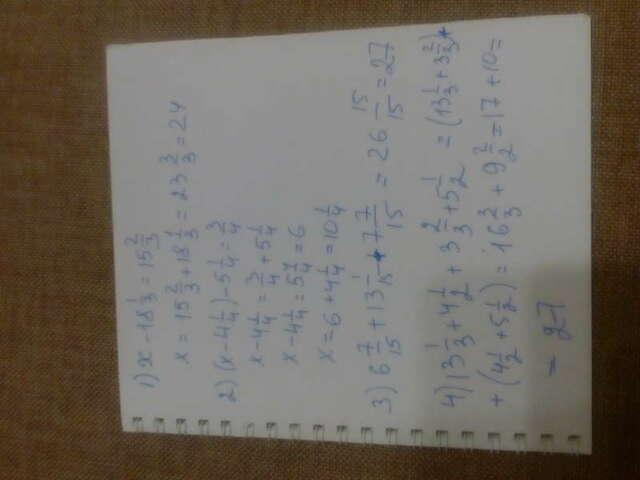 1) x - 18 1/3 = 15 2/3
x = 15 2/3 + 18 1/3 = 23 3/3 = 24
2) (x - 4 1/4) - 5 1/4 = 3/4
x - 4 1/4 = 3/4 + 5 1/4
x - 4 1/4 = 5 4/4 = 6
x = 6 + 4 1/4 = 10 1/4
3) 6 7/15 + 13 1/15 + 7 7/15 = 26 15/15 = 27
4) 13 1/3 + 4 1/2 + 3 2/3 + 5 1/2 = (13 1/3 + 3 2/3) +
+ (4 1/2 + 5 1/2) = 16 3/3 + 9 2/2 = 17 + 10 =
= 27